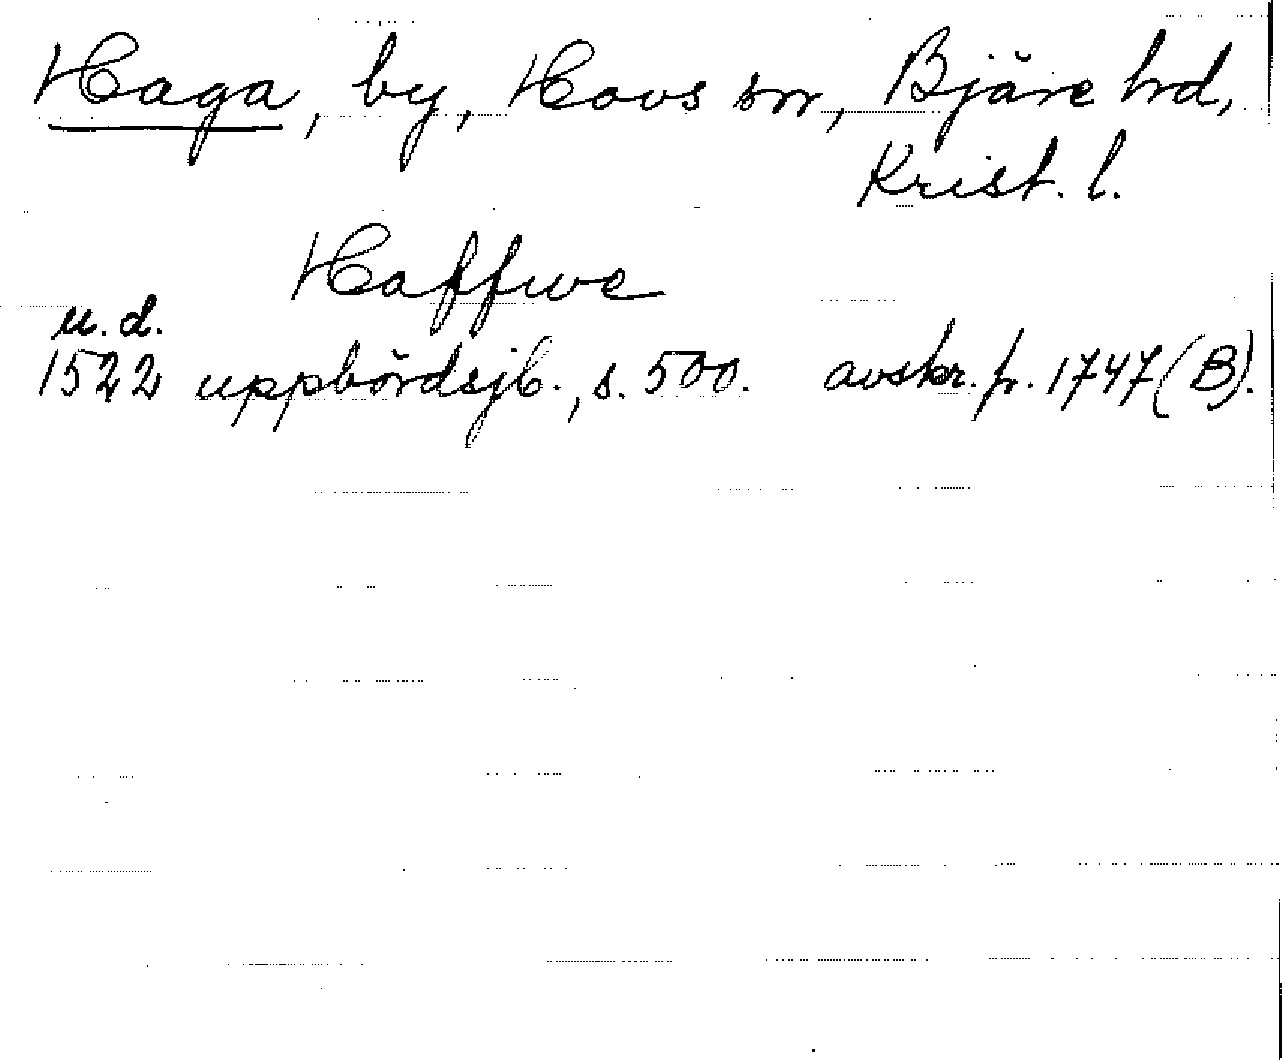 Haga, by, Hovs sn, Bjäre hd,
Krist. l.
Haffwe
u. d.
1522 uppbördsjb., s. 500. avskr. fr. 1747 (B).